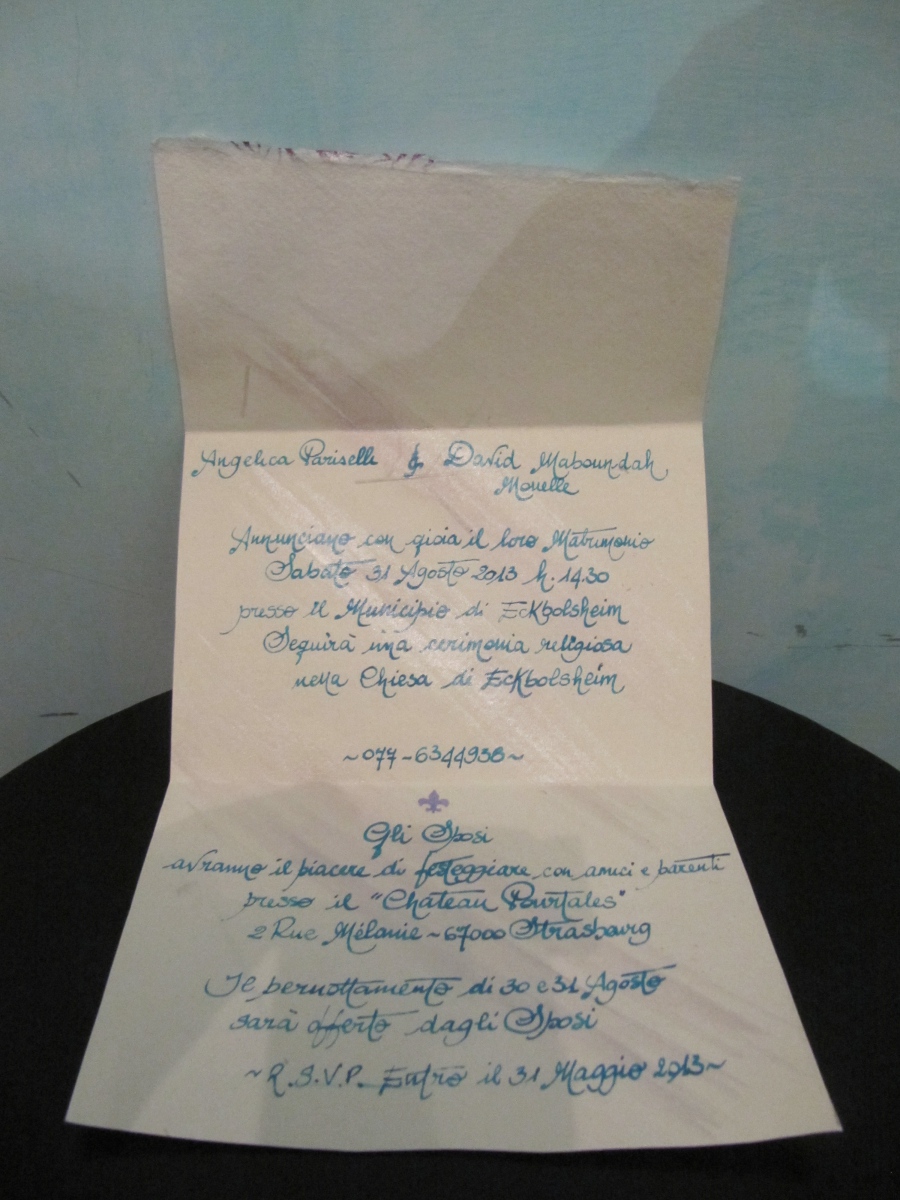 Angelica Pariselli & David Maboundah
Mouelle
Annunciano con gioia il loro Matrimonio
Sabato 31 Agosto 2013 h. 14.30
presso il Municipio di Eckbolsheim
Seguirà una cerimonia religiosa
nella Chiesa di Eckbolsheim
~077-6344938~
Gli Sposi
avranno il piacere di festeggiare con amici e parenti
presso il "Chateau Pourtales"
2 Rue Mélanie ~ 67000 Strasbourg
Il pernottamento di 30 e 31 Agosto
sarà offerto dagli Sposi
~R.S.V.P. Entro il 31 Maggio 2013~